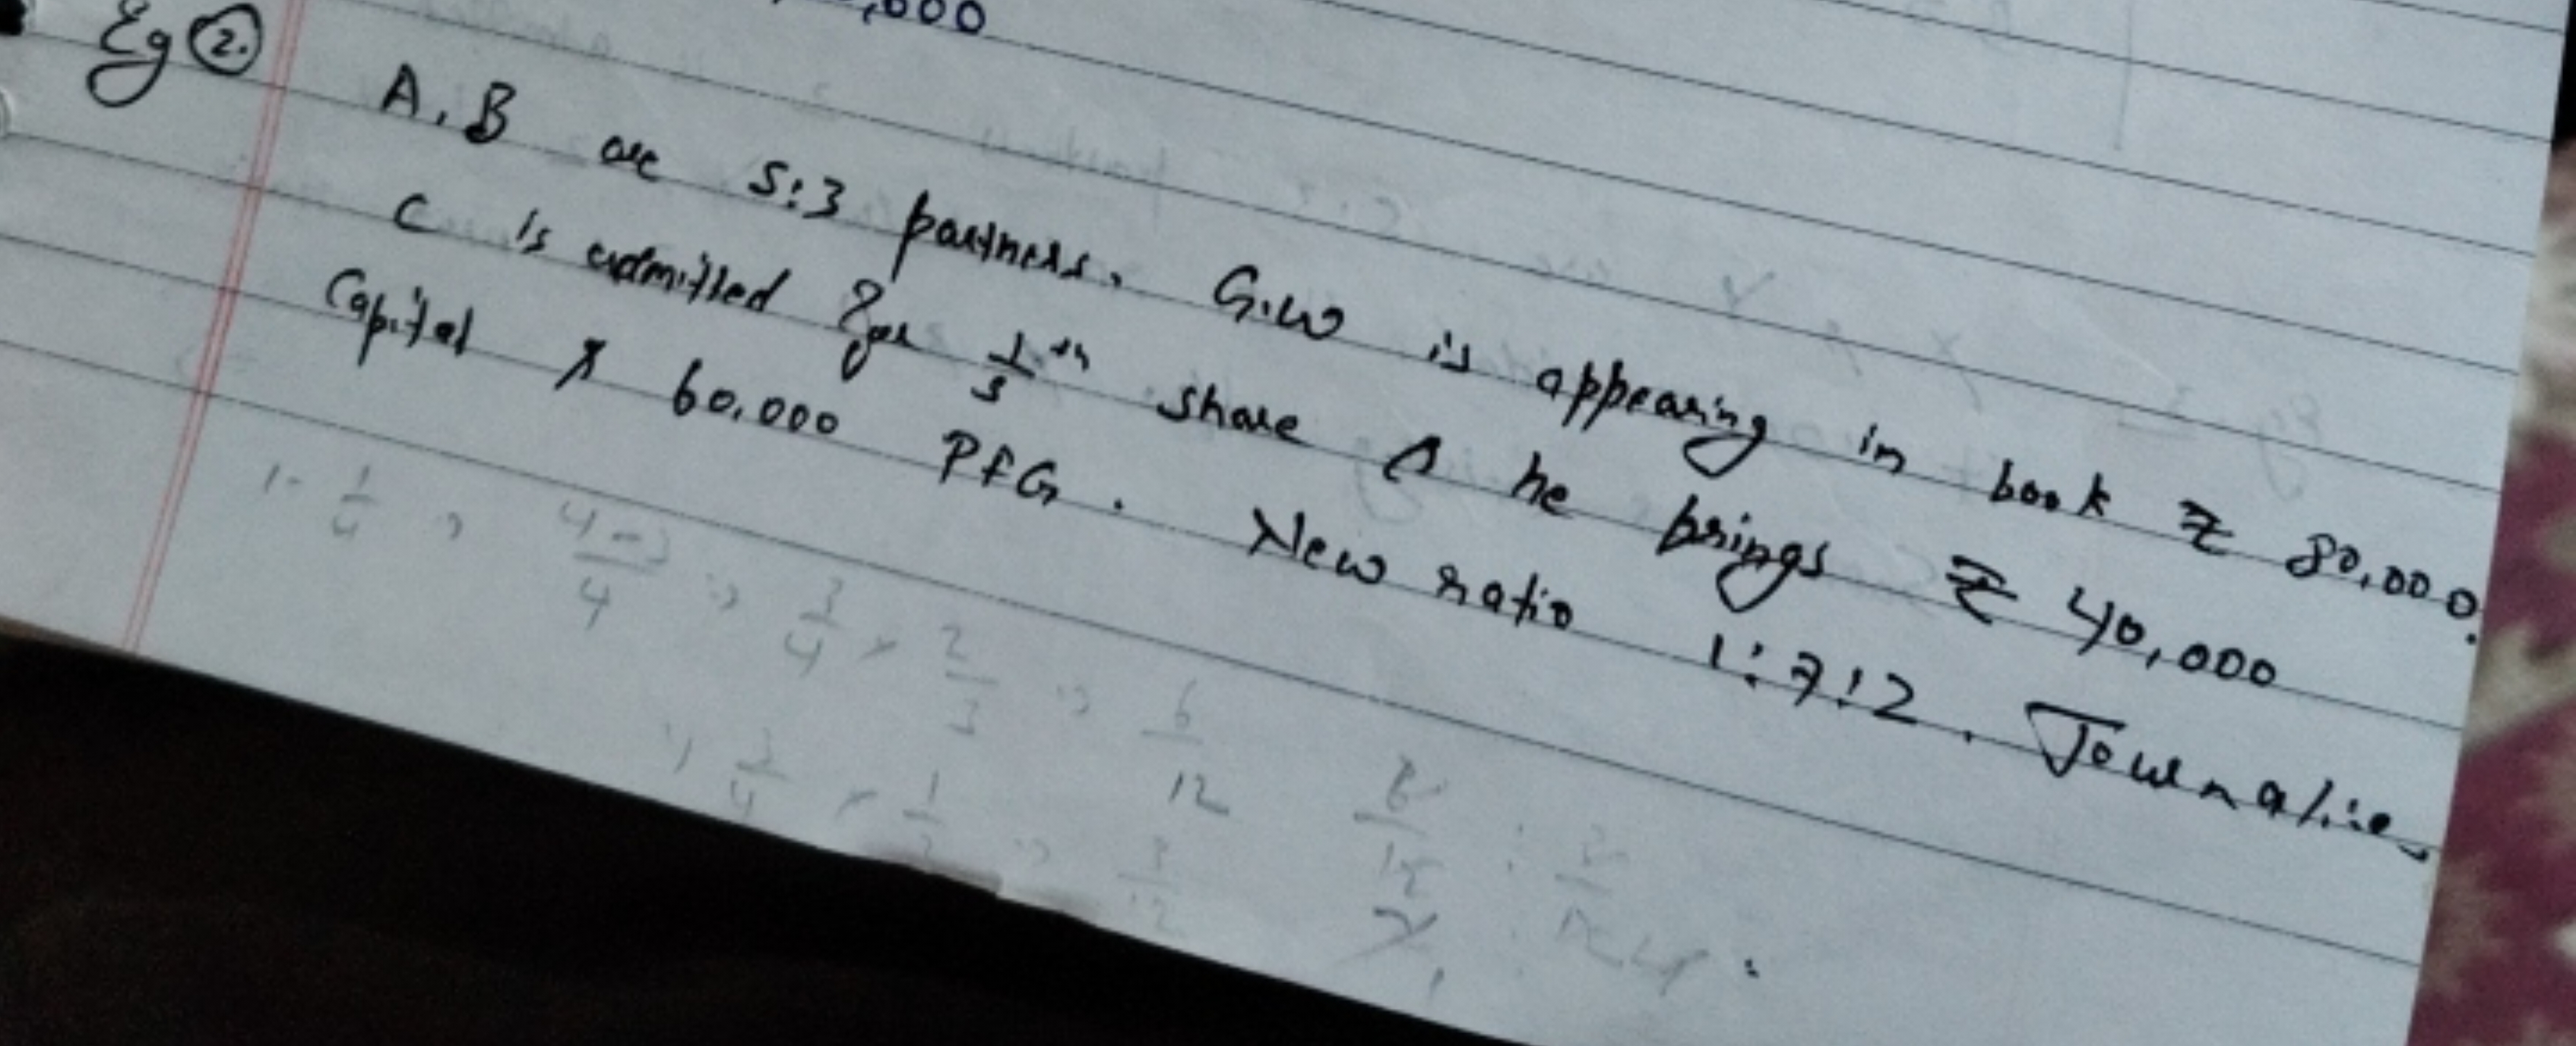 ,000
Eg ②. A, B are 5:3 partners. G.W is appearing in book ₹ 80,000.
C is admitted for 1/5th share & he brings ₹ 40,000
Capital & 60,000 PfG. New ratio 1:7:2. Journalise
1 - 1/4 ⇒ 4-1/4 ⇒ 3/4 × 2/3 ⇒ 6/12
3/4 × 1/3 ⇒ 3/12